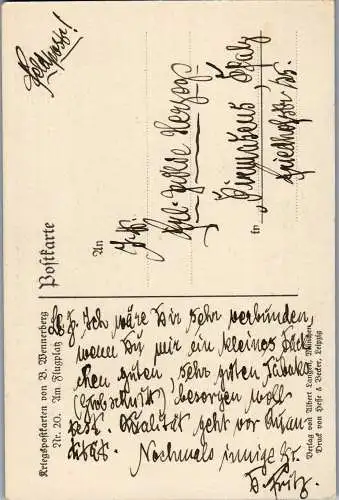 Feldpost!
Kriegspostkarten von B. Wennerberg
Nr. 20. Am Flugplatz
Postkarte
An
Frl. Hilde Herzog
in Pirmasens, Pfalz
Friedhofstr.
L. H. Ich wäre Dir sehr verbunden,
wenn Du mir ein kleines Päck-
chen guten, sehr guten Tabaks
(Grobschnitt) besorgen woll-
test. Qualität geht vor Quan-
tität.
Nochmals innige Gr.
D. Fritz.
Verlag von Albert Langen, München
Druck von Hesse & Becker, Leipzig